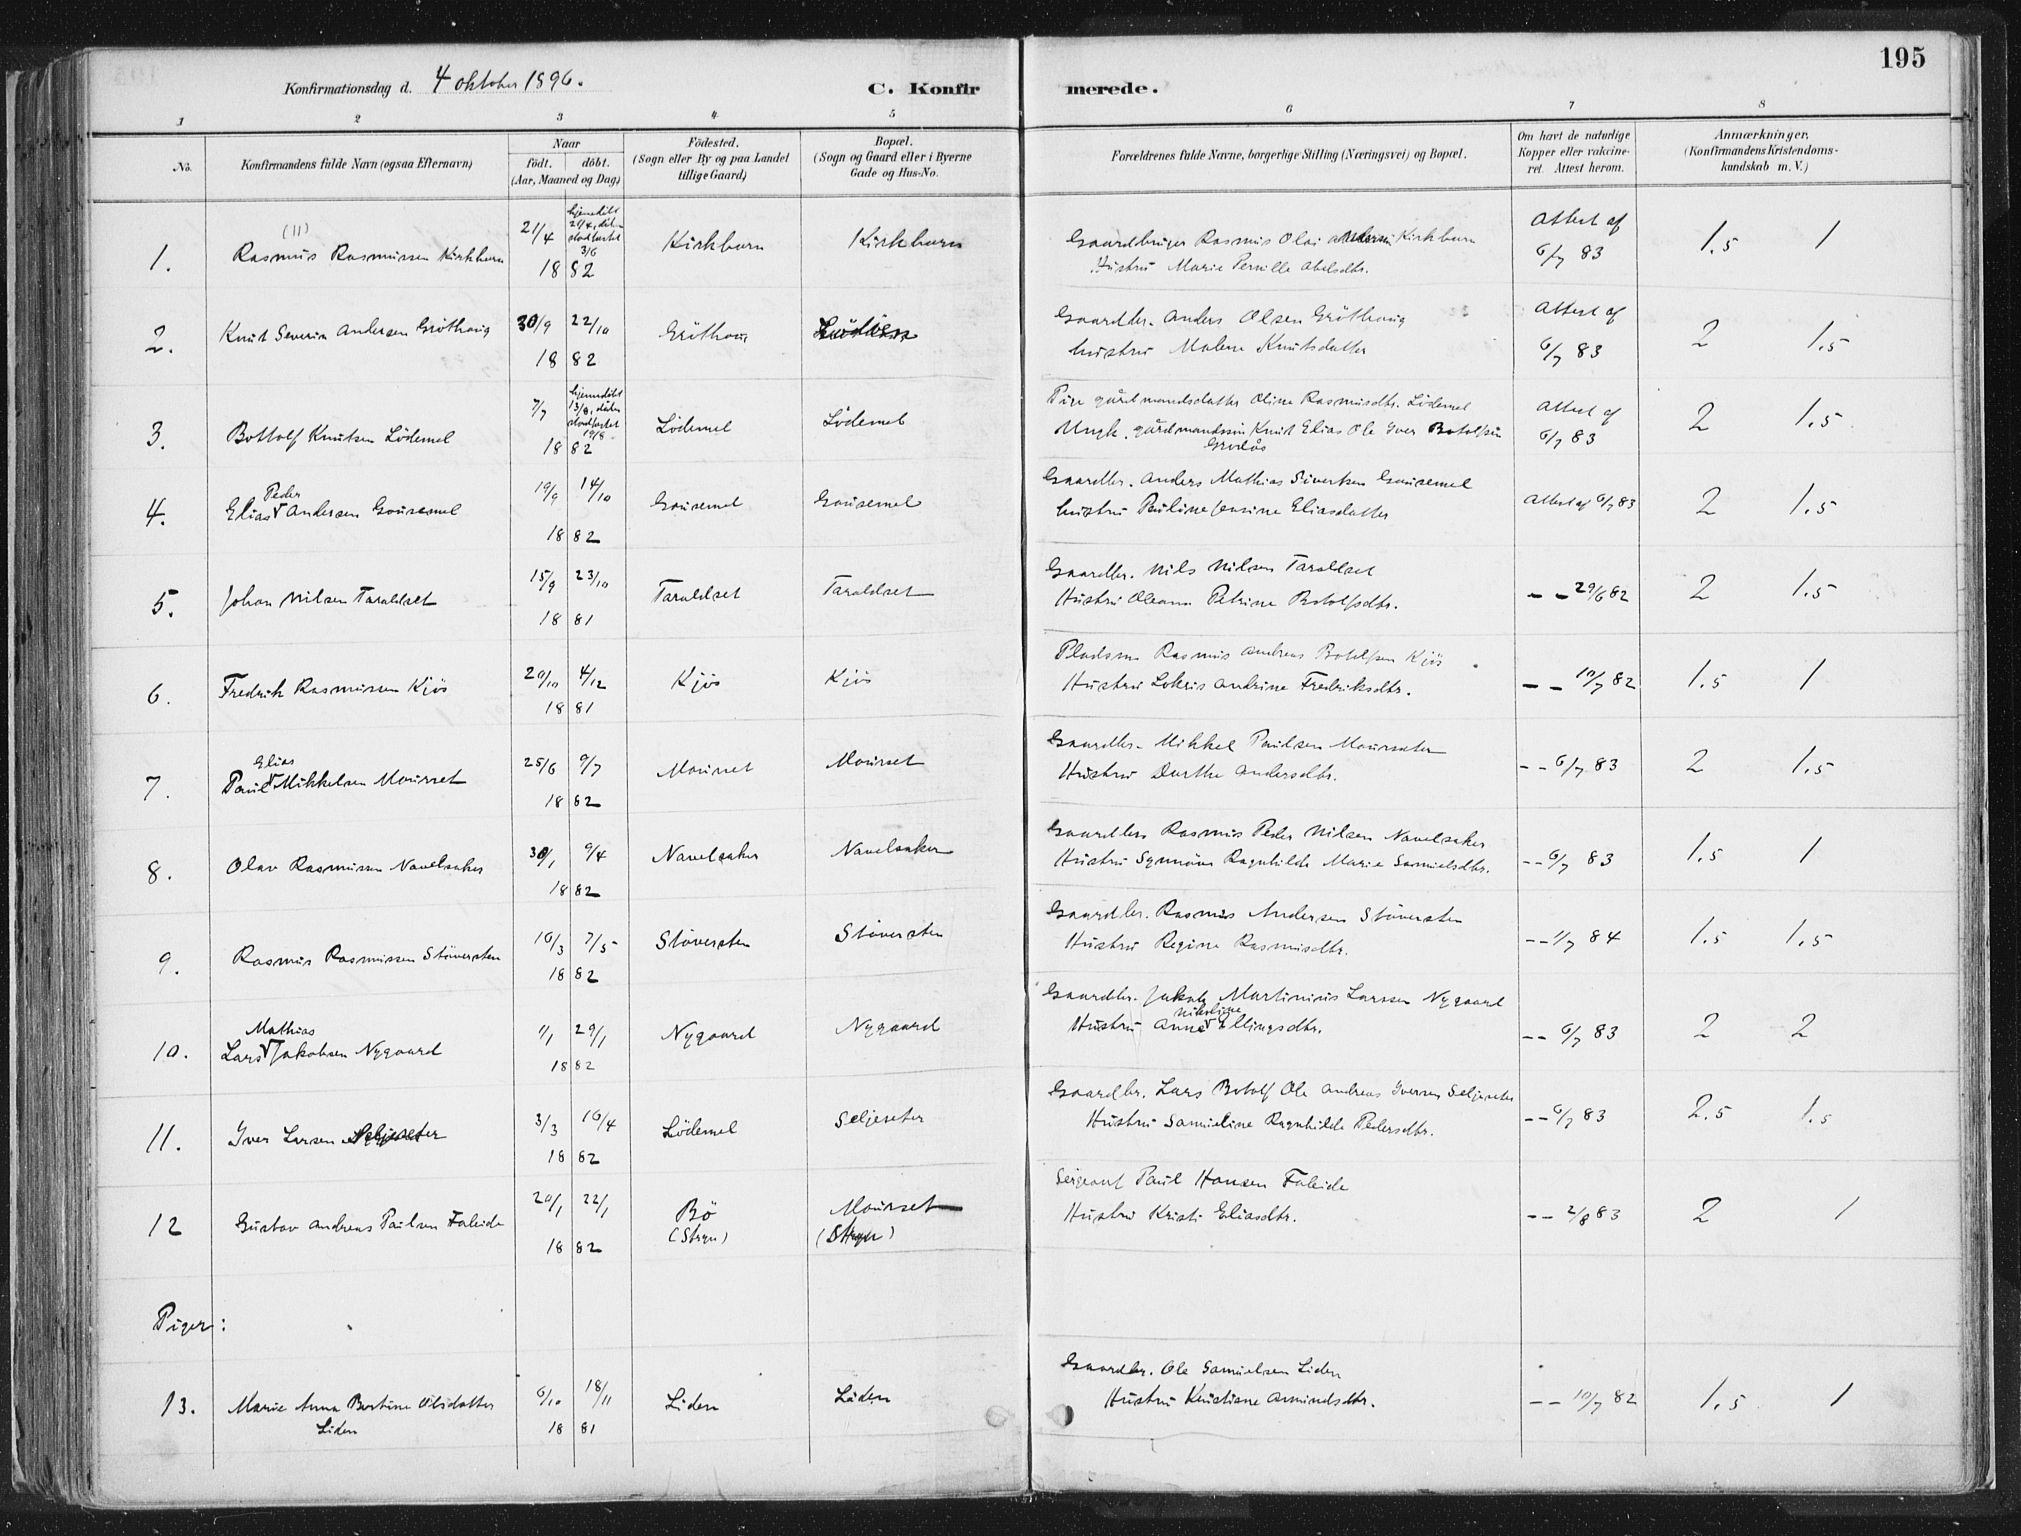 195
Konfirmationsdag d. 4 oktober 1896. C. Konfirmerede.
1 2 3 4 5 6 7 8
No. Konfirmandens fulde Navn (ogsaa Efternavn) Naar födt. döbt. (Aar, Maaned og Dag) Födested. (Sogn eller By og paa Landet tillige Gaard) Bopæl. (Sogn og Gaard eller i Byerne Gade og Hus-No. Forældrenes fulde Navne, borgerlige Stilling (Næringsvei) og Bopæl. Om havt de naturlige Kopper eller vakcineret. Attest herom. Anmærkninger. (Konfirmandens Kristendomskundskab m. V.)
(11)
1. Rasmus Rasmussen Kirkhorn 21/4 hjemmedöbt 3/6 1882 Kirkhorn Kirkhorn Gaardbruger Rasmus Olai Kirkhorn Attest af 6/7 83 1.5 1
Hustru Marie Pernille Abelsdtr.
2. Knut Severin Andersen Gröthaug 30/9 22/10 1882 Gröthaug Gaardbr. Anders Olsen Gröthaug Attest af 6/7 83 2 1.5
hustru Malene Knutsdatter
3. Bottolf Knutsen Lödemel 7/7 hjemmedöbt 13/8, 19/8 1882 Lödemel Lödemel Pige gårdmandsdatter Oline Rasmusdtr. Lödemel Attest af 6/7 83 2 1.5
Ungk. gårdmandssön Knut Elias Ole Iver Botolfsen
4. Elias Peder Andersen Gausemel 19/9 14/10 1882 Gausemel Gausemel Gaardbr. Anders Mathias Sivertsen Gausemel Attest af 6/7 83 2 1.5
hustru Pauline Jensine Eliasdatter
5. Johan Nilsen Taraldset 15/9 23/10 1881 Taraldset Taraldset Gaardbr. Nils Nilsen Taraldset – – 29/6 82 2 1.5
Hustru Oleana Petrine Botolfsdtr.
6. Fredrik Rasmussen Kjös 20/10 4/12 1881 Kjös Kjös Pladsm. Rasmus Andreas Botolfsen Kjös – – 10/7 82 1.5 1
Hustru Lokris Andrine Fredriksdtr.
7. Paul Elias Mikkelsen Maurset 25/6 9/7 1882 Maurset Maurset Gaardbr. Mikkel Paulsen Maurseter – – 6/7 83 2 1.5
Hustru Dorthe Andersdtr.
8. Olav Rasmussen Navelsaker 30/1 9/4 1882 Navelsaker Navelsaker Gaardbr. Rasmus Peder Nilsen Navelsaker – – 6/7 83 1.5 1
Hustru Synnöve Ragnhilde Marie Samuelsdtr.
9. Rasmus Rasmussen Stöversten 16/3 7/5 1882 Stöversten Stöversten Gaardbr. Rasmus Andersen Stöversten – – 11/7 84 1.5 1.5
Hustru Regine Rasmusdtr.
10. Lars Mathias Jakobsen Nygaard 11/1 29/1 1882 Nygaard Nygaard Gaardbr. Jakob Martinius Larssen Nygaard – – 6/7 83 2 2
Hustru Anne Nikoline Ellingsdtr.
11. Iver Larsen Seljeseter 3/3 16/4 1882 Lödemel Seljeseter Gaardbr. Lars Botolf Ole Andreas Iversen Seljeseter – – 6/7 83 2.5 1.5
Hustru Samueline Ragnhilde Pedersdtr.
12 Gustav Andreas Paulsen Faleide 20/1 22/1 1882 Bö (Stryn) Maurset (Stryn) Sergeant Paul Hansen Faleide – – 2/8 83 2 1
Hustru Kristi Eliasdtr.
Piger:
13. Marie Anna Bertine Olsdatter Liden 6/10 18/11 1881 Liden Liden Gaardbr. Ole Samuelsen Liden – – 10/7 82 1.5 1
Hustru Kristiane Asmundsdtr.